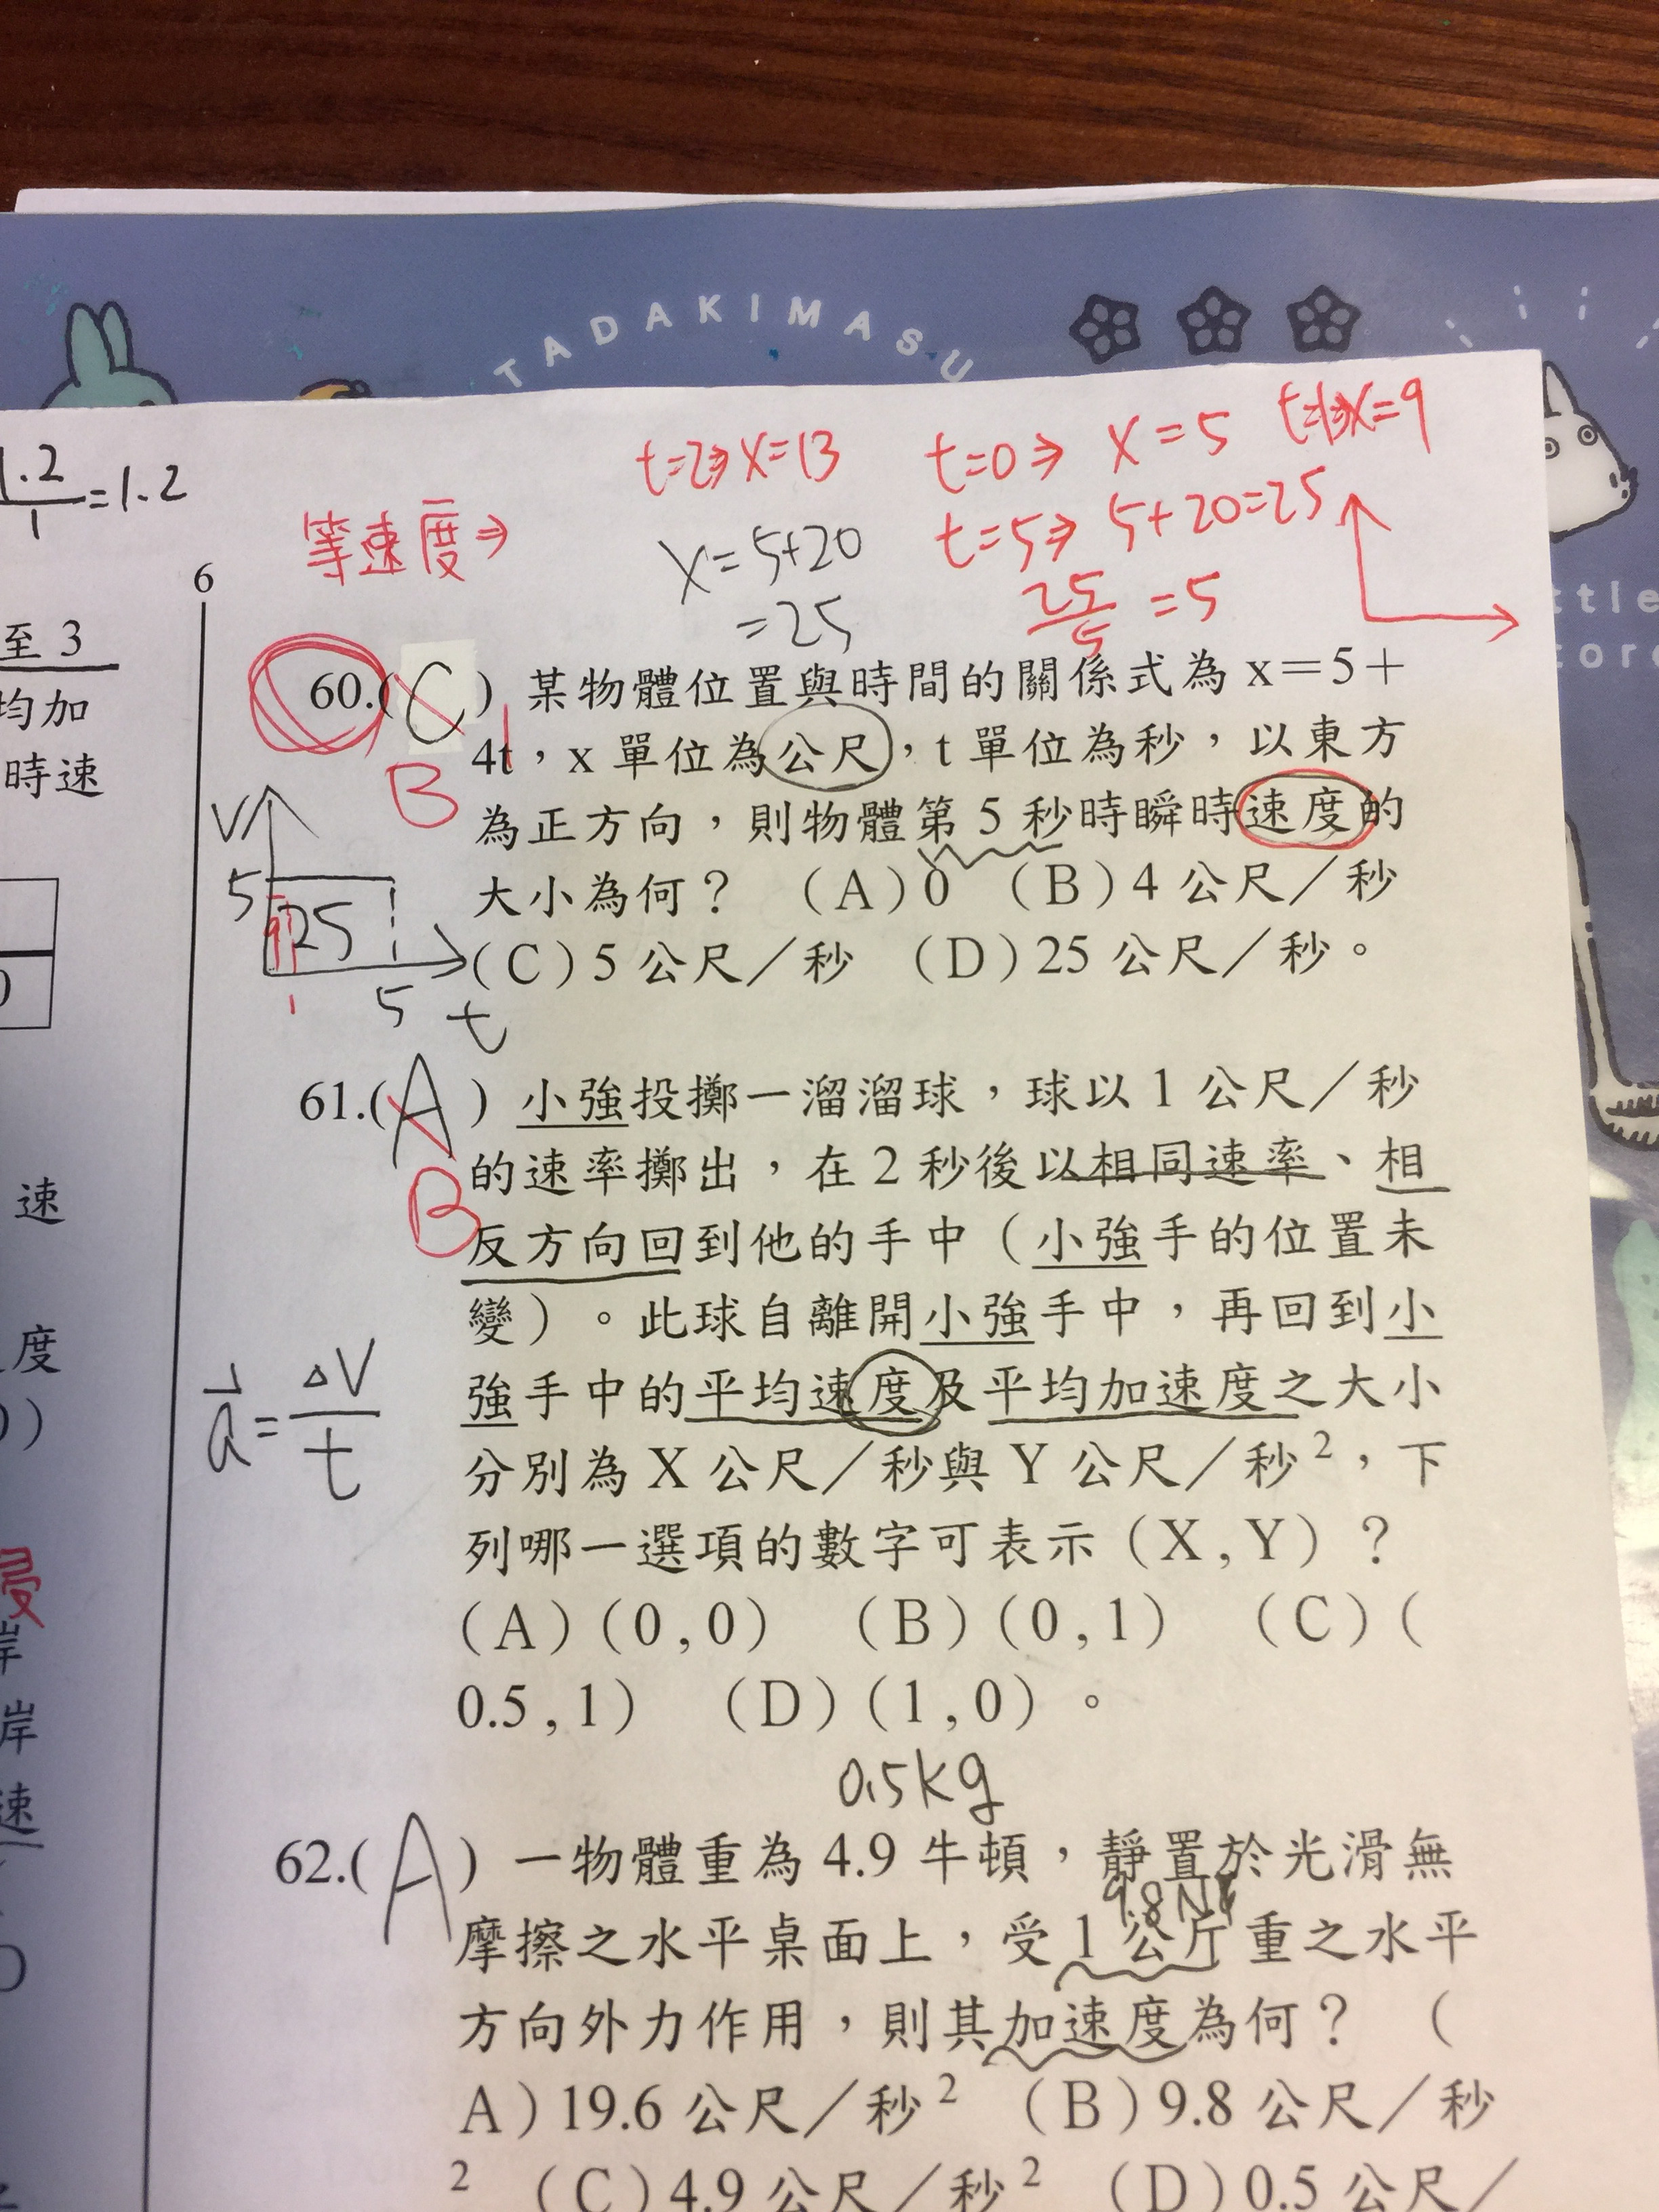 TADAKIMASU
t=2⇒X=13
t=0⇒ X=5
t=1⇒X=9
1.2/1=1.2
等速度⇒
X=5+20
=25
t=5⇒ 5+20=25
25/5=5
6
至 3
均加
時速
速
度
60.(C) 某物體位置與時間的關係式為 x=5+
4t，x 單位為公尺，t 單位為秒，以東方
B
為正方向，則物體第 5 秒時瞬時速度的
大小為何？ (A)0 (B)4 公尺／秒
(C)5 公尺／秒 (D)25 公尺／秒。
V
5
25
9
1
5
t
61.(A) 小強投擲一溜溜球，球以 1 公尺／秒
的速率擲出，在 2 秒後以相同速率、相
B
反方向回到他的手中（小強手的位置未
變）。此球自離開小強手中，再回到小
強手中的平均速度及平均加速度之大小
分別為 X 公尺／秒與 Y 公尺／秒²，下
列哪一選項的數字可表示（X,Y）？
(A)(0,0) (B)(0,1) (C)(
0.5,1) (D)(1,0)。
a=ΔV/t
岸
岸
速
0.5kg
62.(A) 一物體重為 4.9 牛頓，靜置於光滑無
摩擦之水平桌面上，受 1 公斤重之水平
9.8N
方向外力作用，則其加速度為何？ (
A)19.6 公尺／秒² (B)9.8 公尺／秒
² (C)4.9 公尺／秒² (D)0.5 公尺／